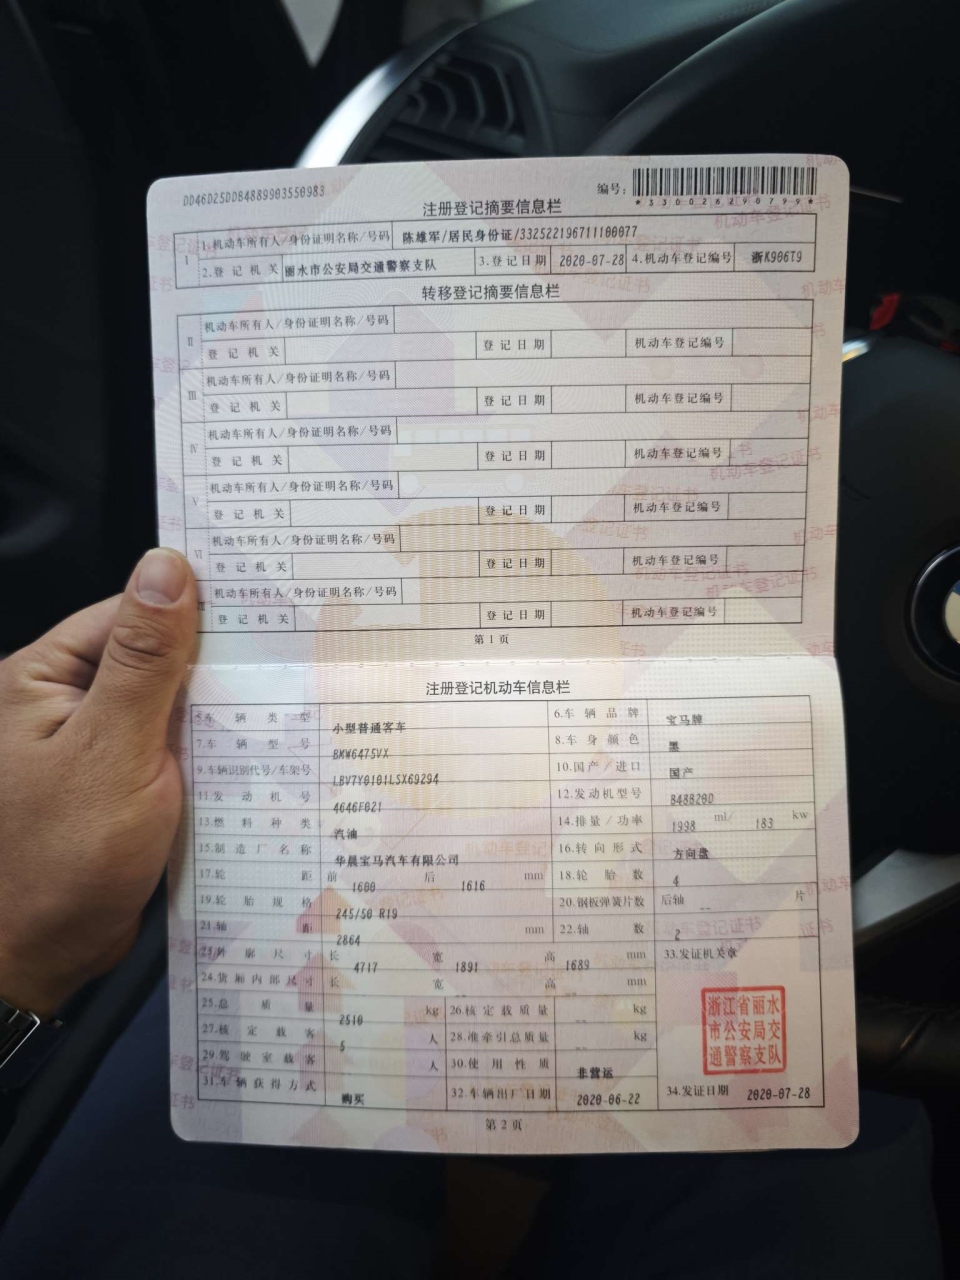 DD46D25DDB4889903550983
编号:
*330026290799*
注册登记摘要信息栏
I 1.机动车所有人/身份证明名称/号码 陈雄军/居民身份证/332522196711100077
2.登记机关 丽水市公安局交通警察支队 3.登记日期 2020-07-28 4.机动车登记编号 浙K906T9
转移登记摘要信息栏
II 机动车所有人/身份证明名称/号码
登记机关 登记日期 机动车登记编号
III 机动车所有人/身份证明名称/号码
登记机关 登记日期 机动车登记编号
IV 机动车所有人/身份证明名称/号码
登记机关 登记日期 机动车登记编号
V 机动车所有人/身份证明名称/号码
登记机关 登记日期 机动车登记编号
VI 机动车所有人/身份证明名称/号码
登记机关 登记日期 机动车登记编号
机动车所有人/身份证明名称/号码
登记机关 登记日期 机动车登记编号
第1页
注册登记机动车信息栏
5.车辆类型 小型普通客车 6.车辆品牌 宝马牌
7.车辆型号 BMW6475VX 8.车身颜色 黑
9.车辆识别代号/车架号 LBV7Y0101LSX69294 10.国产/进口 国产
11.发动机号 4646F021 12.发动机型号 B48B20D
13.燃料种类 汽油 14.排量/功率 1998 ml/ 183 kw
15.制造厂名称 华晨宝马汽车有限公司 16.转向形式 方向盘
17.轮距 前 1600 后 1616 mm 18.轮胎数 4
19.轮胎规格 245/50 R19 20.钢板弹簧片数 后轴 -- 片
21.轴距 2864 mm 22.轴数 2
23.外廓尺寸 长 4717 宽 1891 高 1689 mm 33.发证机关章
24.货厢内部尺寸 长 宽 -- 高 -- mm
25.总质量 2510 kg 26.核定载质量 -- kg
27.核定载客 5 人 28.准牵引总质量 -- kg
29.驾驶室载客 人 30.使用性质 非营运
31.车辆获得方式 购买 32.车辆出厂日期 2020-06-22 34.发证日期 2020-07-28
浙江省丽水
市公安局交
通警察支队
第2页